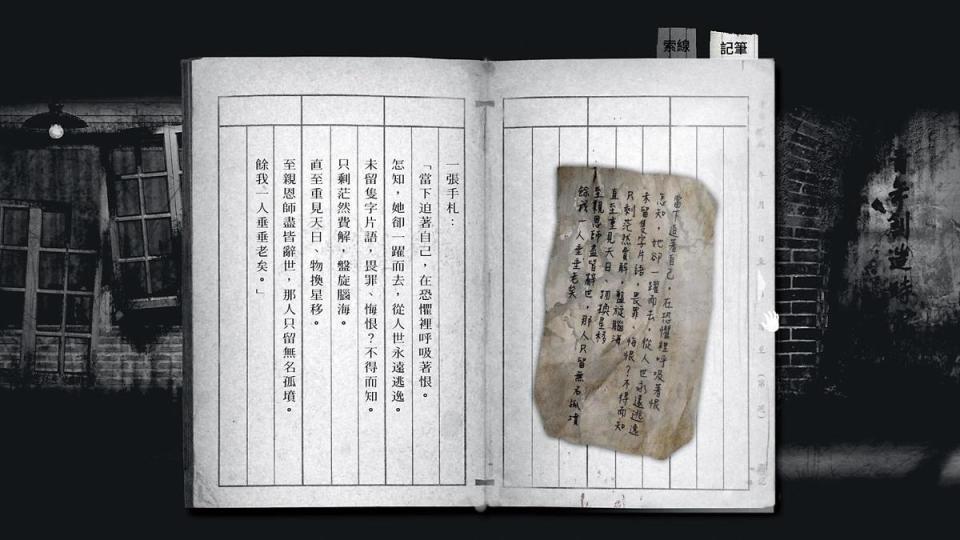 索線
記筆
一張手札：
「當下迫著自己，在恐懼裡呼吸著恨。
怎知，她卻一躍而去，從人世永遠逃逸。
未留隻字片語，畏罪、悔恨？不得而知。
只剩茫然費解，盤旋腦海。
直至重見天日、物換星移。
至親恩師盡皆辭世，那人只留無名孤墳。
餘我一人垂垂老矣。」
當下迫著自己，在恐懼裡呼吸著恨
怎知，她卻一躍而去，從人世永遠逃逸
未留隻字片語，畏罪、悔恨？不得而知
只剩茫然費解，盤旋腦海
直至重見天日、物換星移
至親恩師盡皆辭世，那人只留無名孤墳
餘我一人垂垂老矣